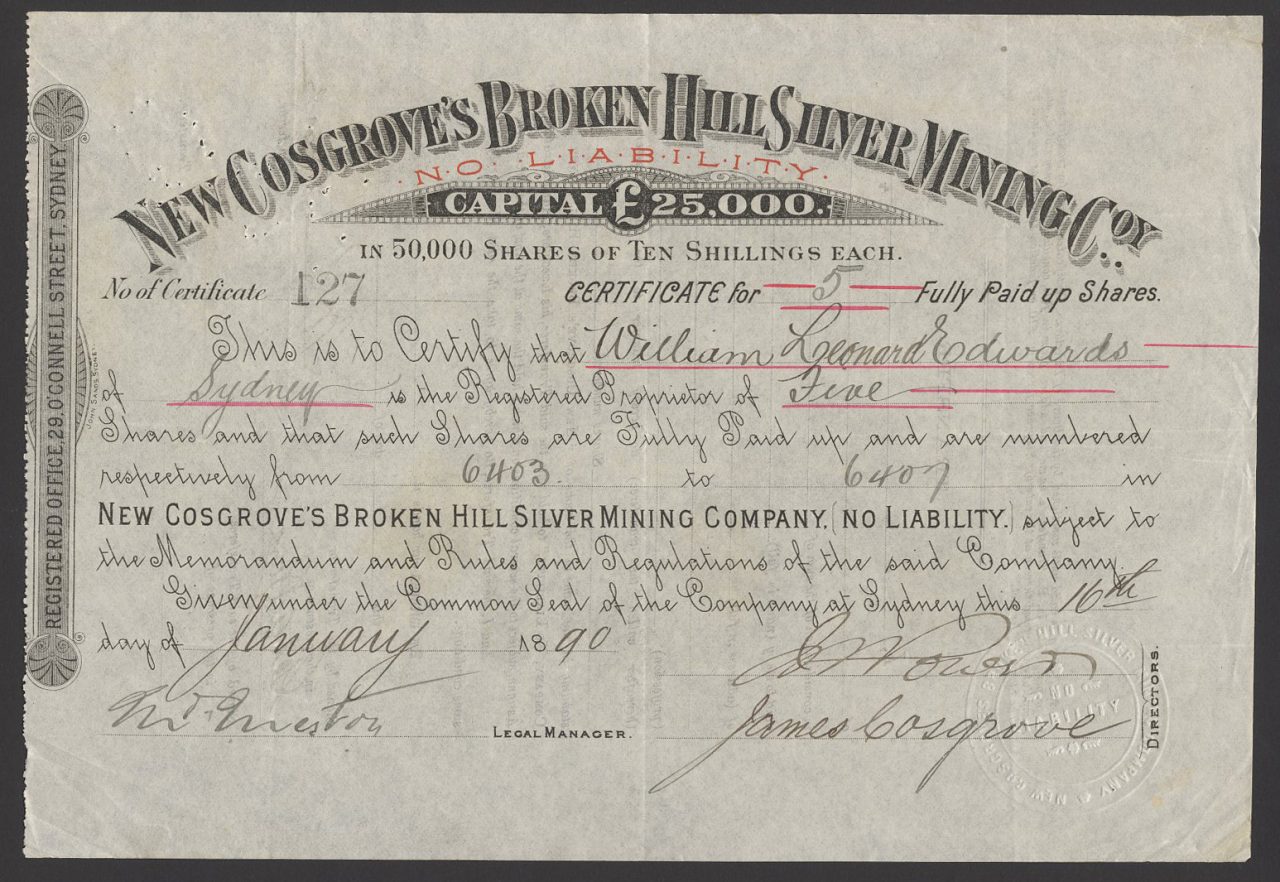 NEW COSGROVE'S BROKEN HILL SILVER MINING COY.
NO LIABILITY.
CAPITAL £25,000.
IN 50,000 SHARES OF TEN SHILLINGS EACH.
No of Certificate 127 CERTIFICATE for 5 Fully Paid up Shares.
This is to Certify that William Leonard Edwards
of Sydney is the Registered Proprietor of Five
Shares and that such Shares are Fully Paid up and are numbered
respectively from 6403 to 6407 in
NEW COSGROVE'S BROKEN HILL SILVER MINING COMPANY, (NO LIABILITY.) subject to
the Memorandum and Rules and Regulations of the said Company.
Given under the Common Seal of the Company at Sydney this 16th
day of January 1890
James Cosgrove
LEGAL MANAGER.
DIRECTORS.
REGISTERED OFFICE, 29, O'CONNELL STREET, SYDNEY.
JOHN SANDS, SYDNEY.
NEW COSGROVE'S BROKEN HILL SILVER COMPANY
NO
LIABILITY